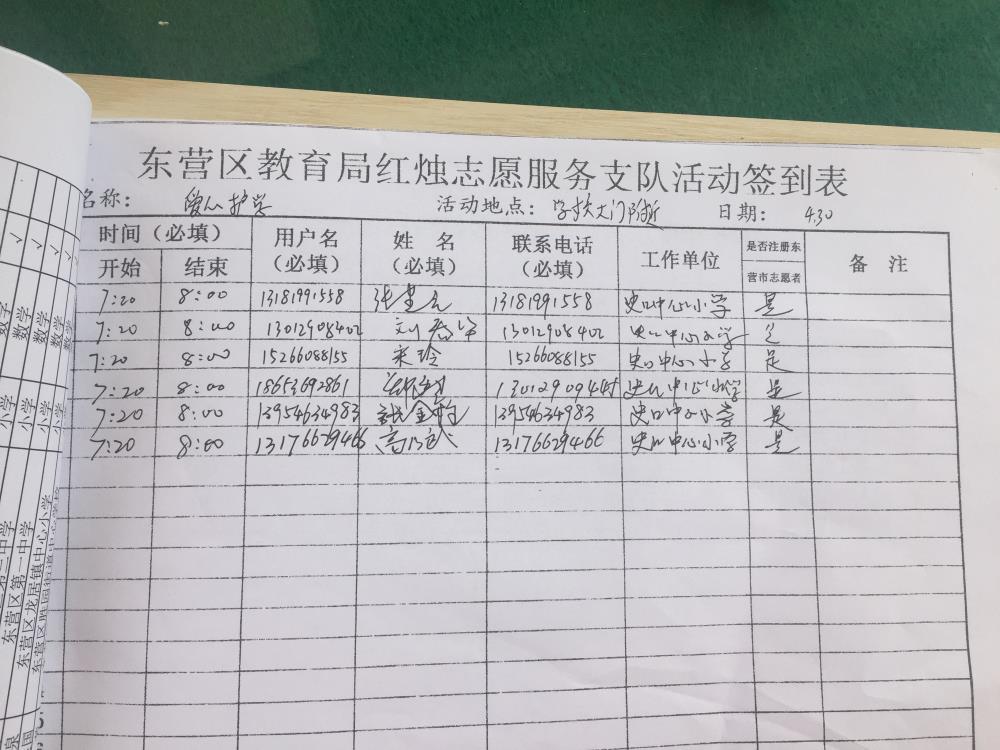 东营区教育局红烛志愿服务支队活动签到表
名称： 爱心护学 活动地点： 学校大门附近 日期： 4.30
时间（必填） 用户名（必填） 姓 名（必填） 联系电话（必填） 工作单位 是否注册东营市志愿者 备 注
开始 结束
7:20 8:00 13181991558 13181991558 史口中心小学 是
7:20 8:00 13012908402 刘春华 13012908402 史口中心小学 是
7:20 8:00 15266088155 宋玲 15266088155 史口中心小学 是
7:20 8:00 18653692861 史口中心小学 是
7:20 8:00 13954634983 13954634983 史口中心小学 是
7:20 8:00 13176629466 13176629466 史口中心小学 是
数学
数学
数学
数学
小学
小学
小学
小学
东营区第一中学
东营区龙居镇中心小学